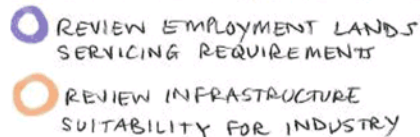 REVIEW EMPLOYMENT LANDS
SERVICING REQUIREMENTS
REVIEW INFRASTRUCTURE
SUITABILITY FOR INDUSTRY